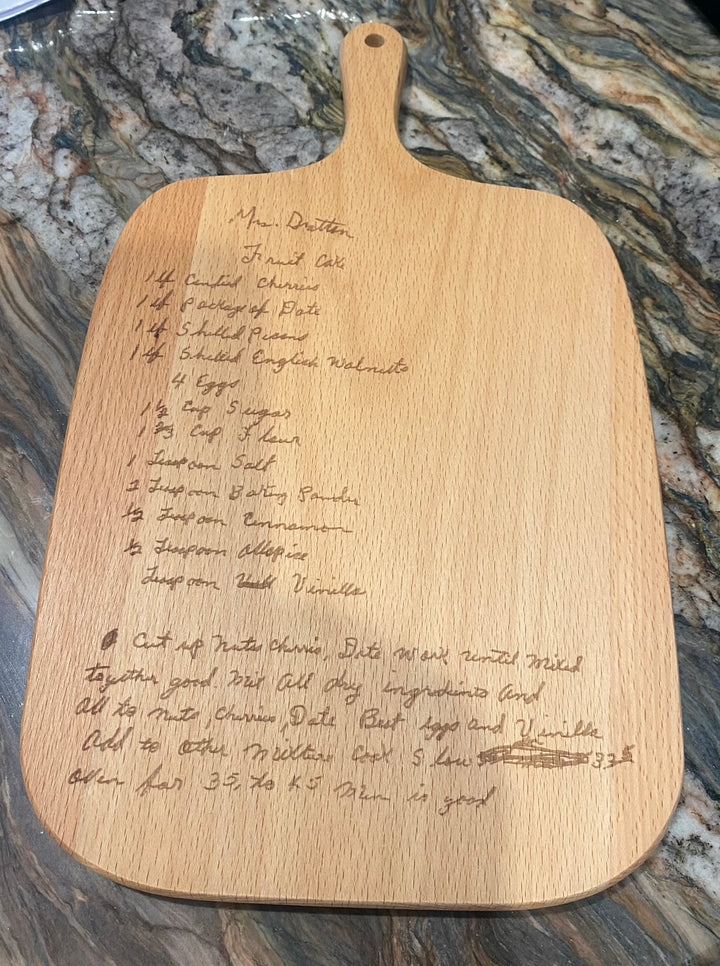 Mrs. Dratten
Fruit Cake
1 lb Candied Cherries
1 lb Package of Date
1 lb Shelled Picans
1 lb Shelled English Walnutts
4 Eggs
1 ½ Cup Sugar
1 ⅔ Cup Flour
1 Teaspoon Salt
2 Teaspoon Baking Powder
½ Teaspoon Cinnamon
½ Teaspoon Allspice
Teaspoon Vinilla
Cut up Nuts Cherris, Date work until mixed
together good. Mix All dry ingredients And
All to Nuts, Cherries, Date Beat eggs and Vinilla
Add to other Mixture Cook Slow
oven for 35, to 45 Min is good